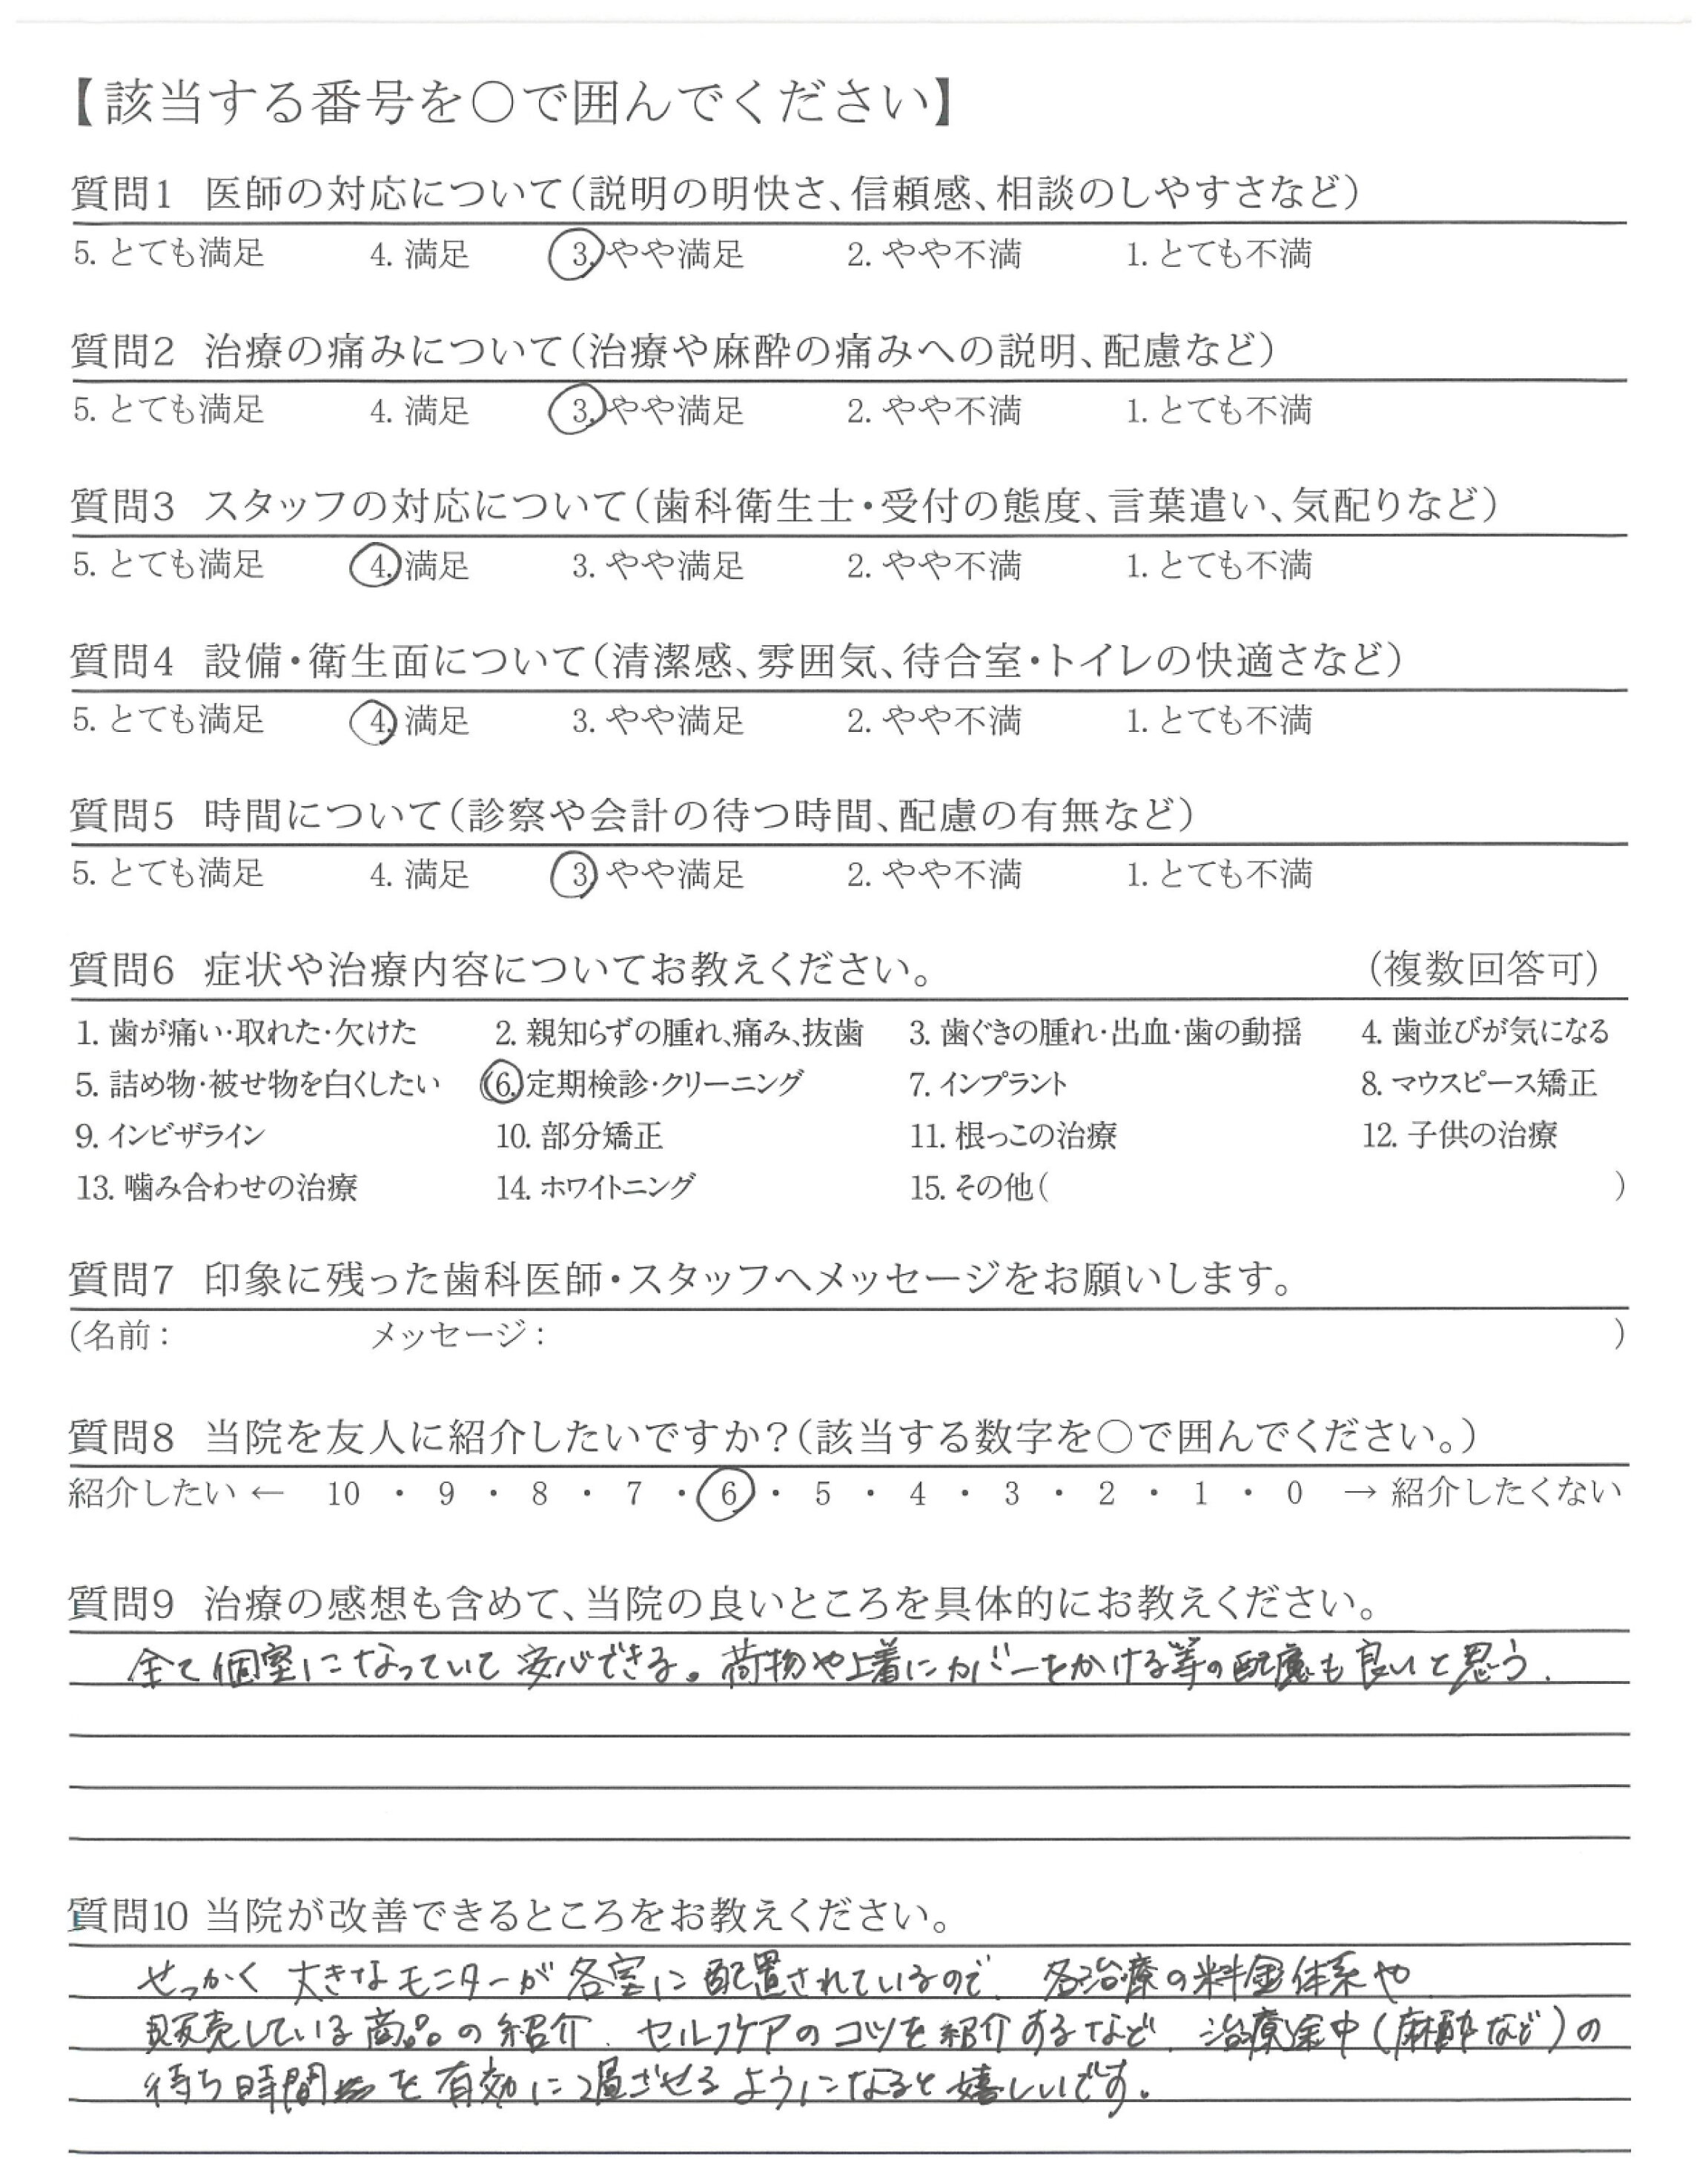 【該当する番号を〇で囲んでください】
質問1 医師の対応について(説明の明快さ、信頼感、相談のしやすさなど)
5. とても満足 4. 満足 3. やや満足 2. やや不満 1. とても不満
質問2 治療の痛みについて(治療や麻酔の痛みへの説明、配慮など)
5. とても満足 4. 満足 3. やや満足 2. やや不満 1. とても不満
質問3 スタッフの対応について(歯科衛生士・受付の態度、言葉遣い、気配りなど)
5. とても満足 4. 満足 3. やや満足 2. やや不満 1. とても不満
質問4 設備・衛生面について(清潔感、雰囲気、待合室・トイレの快適さなど)
5. とても満足 4. 満足 3. やや満足 2. やや不満 1. とても不満
質問5 時間について(診察や会計の待つ時間、配慮の有無など)
5. とても満足 4. 満足 3. やや満足 2. やや不満 1. とても不満
質問6 症状や治療内容についてお教えください。 (複数回答可)
1. 歯が痛い・取れた・欠けた 2. 親知らずの腫れ、痛み、抜歯 3. 歯ぐきの腫れ・出血・歯の動揺 4. 歯並びが気になる
5. 詰め物・被せ物を白くしたい 6. 定期検診・クリーニング 7. インプラント 8. マウスピース矯正
9. インビザライン 10. 部分矯正 11. 根っこの治療 12. 子供の治療
13. 噛み合わせの治療 14. ホワイトニング 15. その他( )
質問7 印象に残った歯科医師・スタッフへメッセージをお願いします。
(名前: メッセージ: )
質問8 当院を友人に紹介したいですか?(該当する数字を〇で囲んでください。)
紹介したい ← 10 ・ 9 ・ 8 ・ 7 ・ 6 ・ 5 ・ 4 ・ 3 ・ 2 ・ 1 ・ 0 → 紹介したくない
質問9 治療の感想も含めて、当院の良いところを具体的にお教えください。
全て個室になっていて安心できる。荷物や上着にカバーをかける等の配慮も良いと思う.
質問10 当院が改善できるところをお教えください。
せっかく大きなモニターが各室に配置されているので、各治療の料金体系や
販売している商品の紹介、セルフケアのコツを紹介するなど、治療途中(麻酔など)の
待ち時間を有効に過ごせるようになると嬉しいです。